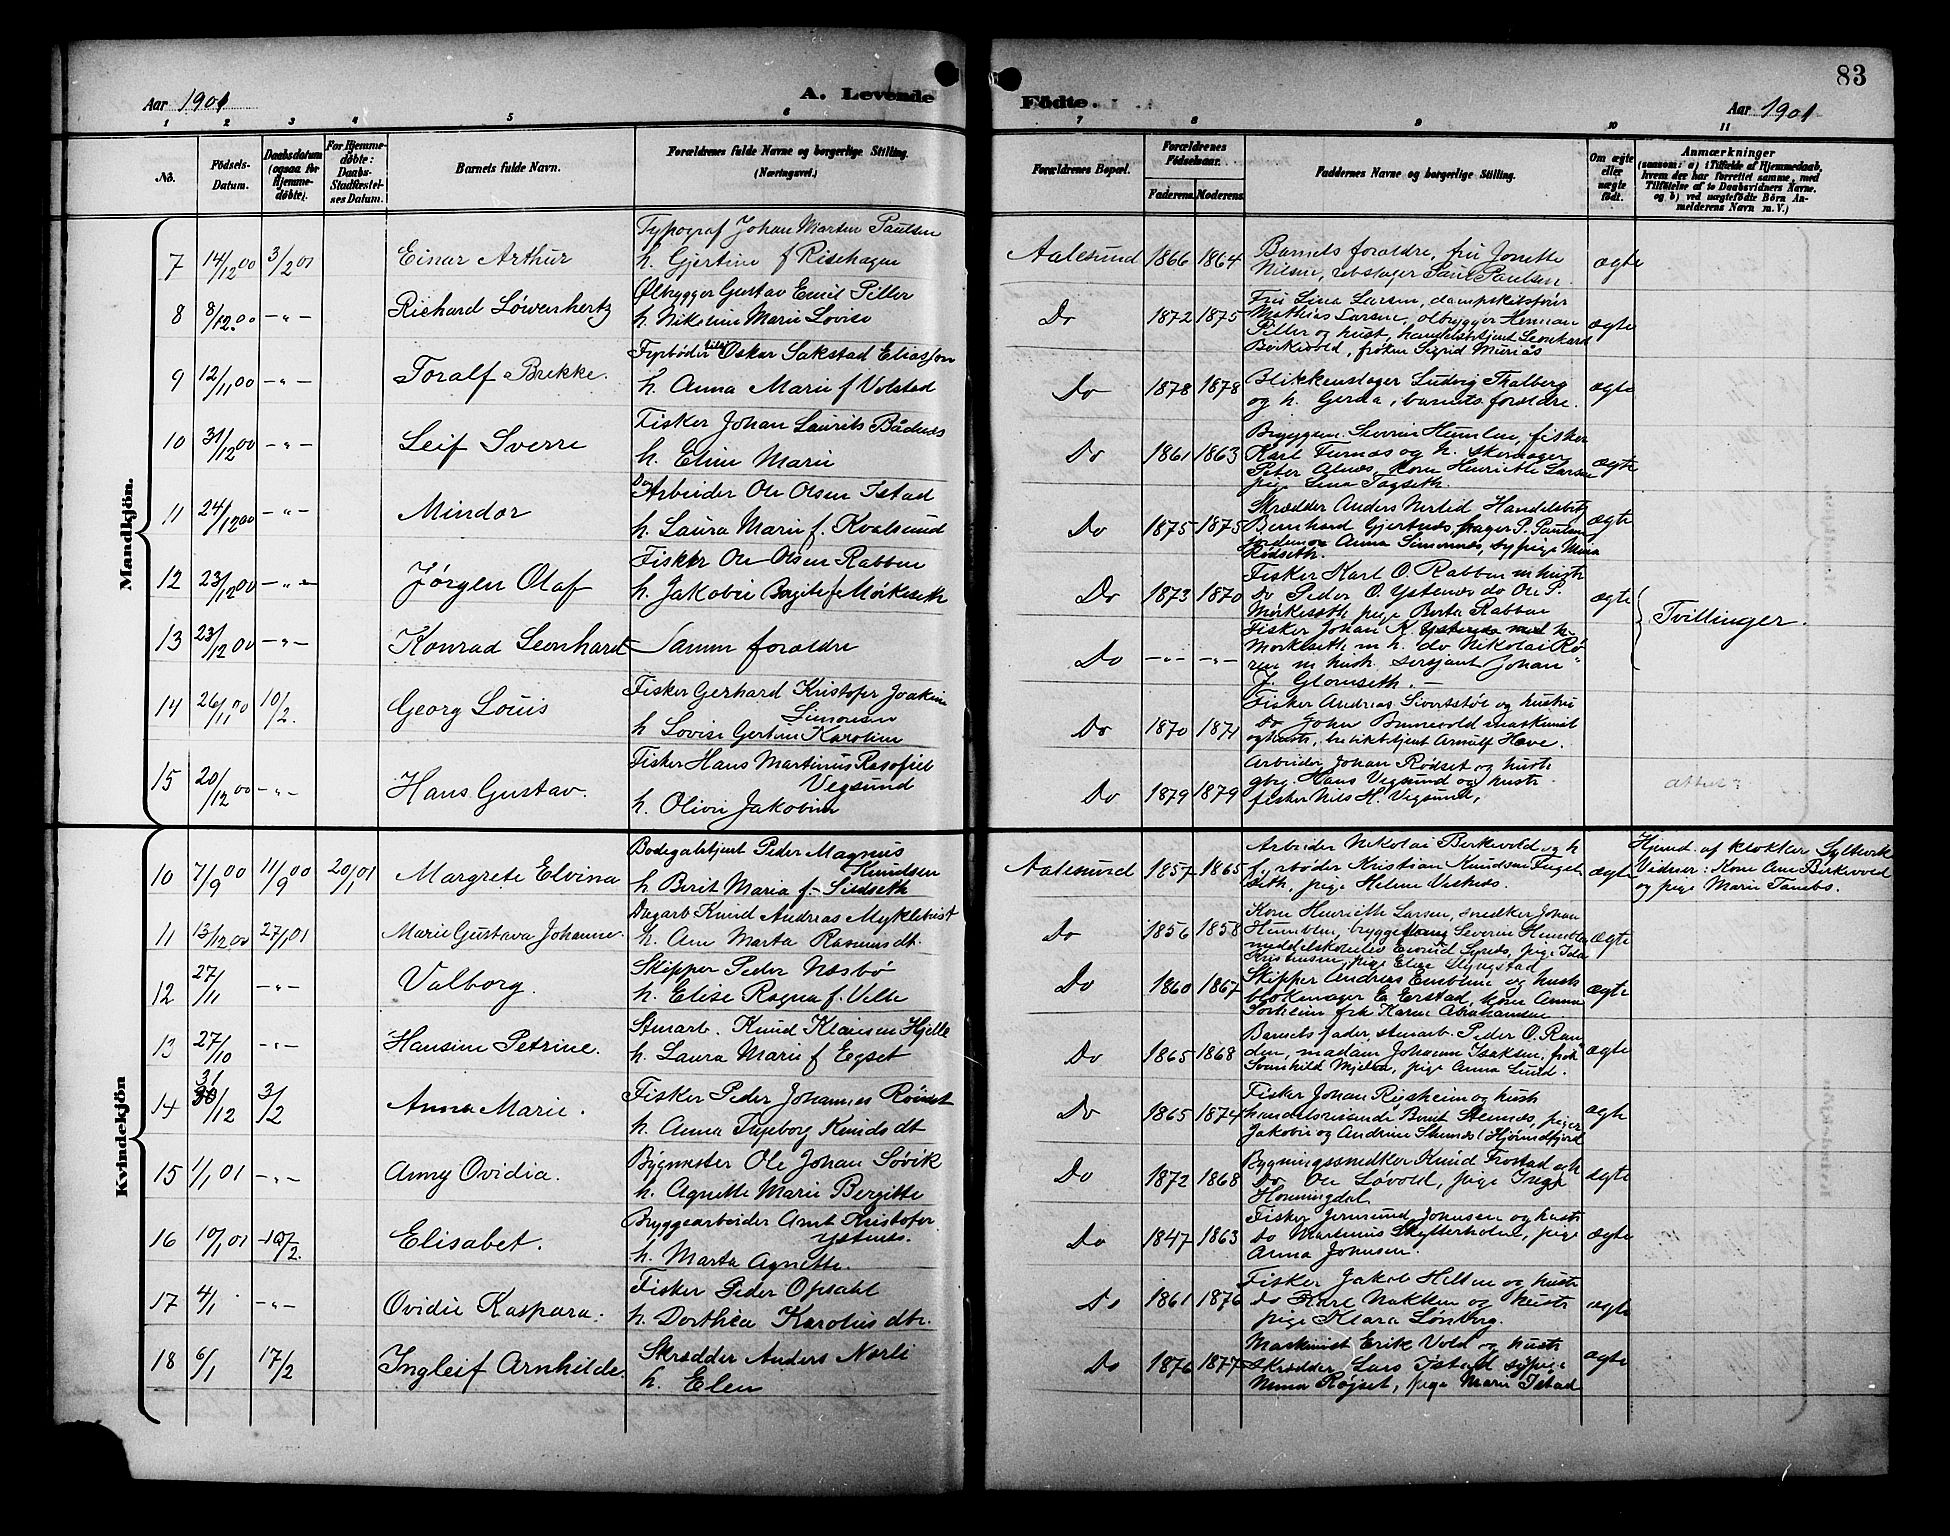 83
Aar 1901
A. Levende
Födte.
Aar 1901
1 2 3 4 5 6 7 8 9 10 11
No.
Födsels-
Datum.
Daabsdatum
(ogsaa for
Hjemme-
døbte).
For Hjemme-
døbte:
Daabs-
Stadfæstel-
ses Datum.
Barnets fulde Navn.
Forældrenes fulde Navne og borgerlige Stilling.
(Næringsvei.)
Forældrenes Bopæl.
Forældrenes
Födselsaar.
Faderens. Moderens.
Faddernes Navne og borgerlige Stilling.
Om ægte
eller
uægte
født.
Anmærkninger
(saasom: a) i Tilfælde af Hjemmedaab,
hvem der har forrettet samme, med
Tilföielse af to Daabsvidners Navne.
og b) ved uægtefödte Börn An-
melderens Navn m. V.)
Mandkjön.
7 14/12 00 3/2 01 Einar Arthur
Typograf Johan Martin Paulsen
h. Gjertine f Risehagen
Aalesund 1866 1864
Barnets forældre, fru Jonette
Nilsen,
ægte
8 8/12.00 -"- Richard Løwenhertz
Ølbrygger Gustav Emil Piller
h. Nikoline Marie Lovise
Do 1872 1875
Fru Lina Larsen, dampskibsfører
Mathias Larsen, ølbrygger Herman
Piller og hust, handelsbetjent Leonhard
Birkevold, frøken Sigrid
ægte
9 12/11 00 -"- Toralf Brekke.
Fyrbøder Oskar Sakstad Eliassen
h. Anna Marie f Volstad
Do 1878 1878
Blikkenslager Ludvig Thalberg
og h. Gerda, barnets forældre.
ægte
10 31/12 00 -"- Leif Sverre
Fisker Johan Laurits Bådnes
h. Eline Marie
Do 1861 1863
Bryggem. Severin Humlen, fisker
Karl Furnæs og h. skomager
Peter Alnæs, Kone Henriette Larsen
pige Lina Tagseth.
ægte
11 24/12 00 -"- Mindor
Arbeider Ole Olsen Istad
h. Laura Marie f. Kvalsund
Do 1875 1875
Skrædder Anders Nerlid Handelsbtj
Bernhard Gjertnes,
Anna Simonnes, sypige Mina
Rødseth.
ægte
12 23/12 00 -"- Jørgen Olaf
Fisker Ole Olsen Rabben
h. Jakobie Bergite f Mørkeseth
Do 1873 1870
Fisker Karl O. Rabben m hust
Do Peder O. Ystenes do Ole P.
Mørkeseth, pige Berta Rabben
ægte
Tvillinger.
13 23/12 00 -"- Konrad Leonhard
Samme forældre
Do -"- -"-
Fisker Johan K. Ystenes med h.
Morkseth m h. do Nikolai Rø-
ren m hust. sersjant Johan
J. Glomseth. -
14 26/11 00 10/2. Georg Louis
Fisker Gerhard Kristofer Joakim
Simonsen
h Lovise Gertine Karoline
Do 1870 1874
Fisker Andreas Sivertstøl og hustru
Do John Brunevold maskinist
og hustr, butikbetjent Arnulf Have.
15 20/12 00 -"- Hans Gustav.
Fisker Hans Martinus Rasofiel
Vegsund
h. Olive Jakobine
Do 1879 1879
Arbeider Johan Rødset og hustr
gbr. Hans Vegsund og hustr.
fisker Nils H. Vegsund,
Kvindekjön
10 7/9 00 11/9 00 20/1 01 Margrete Elvina
Bodegabetjent Peder Magnus
Knudsen
h Berit Maria f. Sildseth
Aalesund 1857 1865
Arbeider Nikolai Birkevold og h
fyrbøder Kristian Knudsen
pige Helene
ægte
Hjemd. af klokker Syltevik
Vidner: Kone Ane Birkevold
og pige Marie Tambs.
11 13/12 00 27/1 01 Marie Gustava Johanne.
Dagarb Knud Andreas Myklebust
h. Ane Marta Rasmusdt.
Do 1856 1858
Kone Henriette Larsen, snedker Johan
Humblen, bryggeform Severin Humblen
Kristensen, pige Elise Slyngstad
ægte
12 27/11 -"- Valborg.
Skipper Peder Næsbø
h. Elise Ragna f. Velle
Do 1860 1867
Skipper Andreas Emblem og hust
blokmager E. Eerstad, kone Anna
frk Karen Abrahamsen
ægte
13 27/10 -"- Hansine Petrine.
Stuarb. Knud Klausen Hjelle
h. Laura Marie f Egset
Do 1865 1868
Barnets fader, stuarb. Peder O. Ran-
den, madam Johanne Isaksen, frøk
Svanhild Mjelva, pige Anna Lund.
ægte
14 31/12 3/2 Anna Marie.
Fisker Peder Johannes Røiset
h. Anna Ingeborg Knudsdt
Do 1865 1874
Fisker Johan Risheim og hust
handelsreisende Berut Stennes, piger
Jakobie og Andrine Stennes (Hjørundfjord
ægte
15 1/1 01 -"- Anny Ovidia.
Bygmester Ole Johan Søvik
h. Agnette Marie Bergitte
Do 1872 1868
Bygningssnedker Knud Frostad og h
Do Ole Løvold, pige Inga
Honningdal
ægte
16 10/1 01 10/2. Elisabet.
Bryggearbeider Arnt Kristofer
Ystenes.
h. Marta Agnette.
Do 1847 1863
Fisker Jermund Johnsen og hustr
Do Martinus Skytterholm, pige
Anna Johnsen.
ægte
17 4/1 -"- Ovidie Kaspara.
Fisker Peder Opsahl
h. Dorthea Karolusdtr.
Do 1861 1876
Fisker Jakob Hellen og hustr
do Karl Nakken og hustr
pige Klara Lønberg.
ægte
18 6/1 17/2 Ingleif Arnhilde.
Skrædder Anders Nerli
h. Elen
Do 1876 1877
Maskinist Erik Vold og hustr
skrædder Lars Istad sypige
Nuna Røjset, pige Marie Istad
ægte